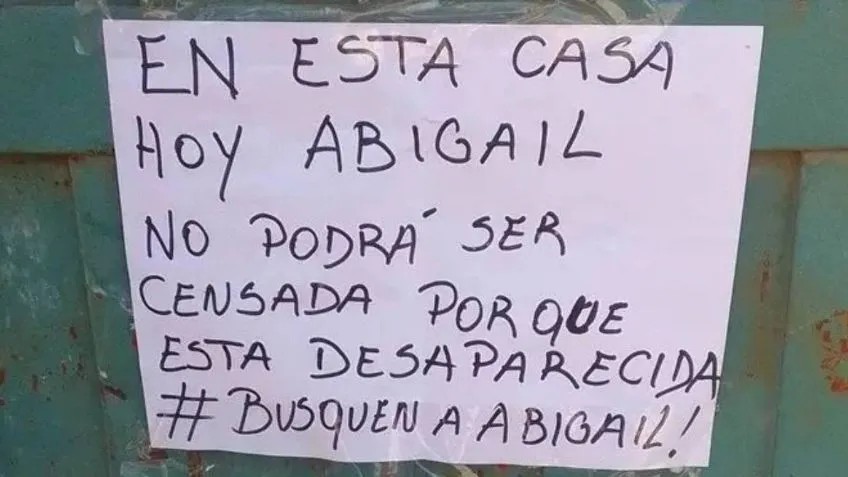 EN ESTA CASA
HOY ABIGAIL
NO PODRÁ SER
CENSADA PORQUE
ESTA DESAPARECIDA
# BUSQUEN A ABIGAIL!